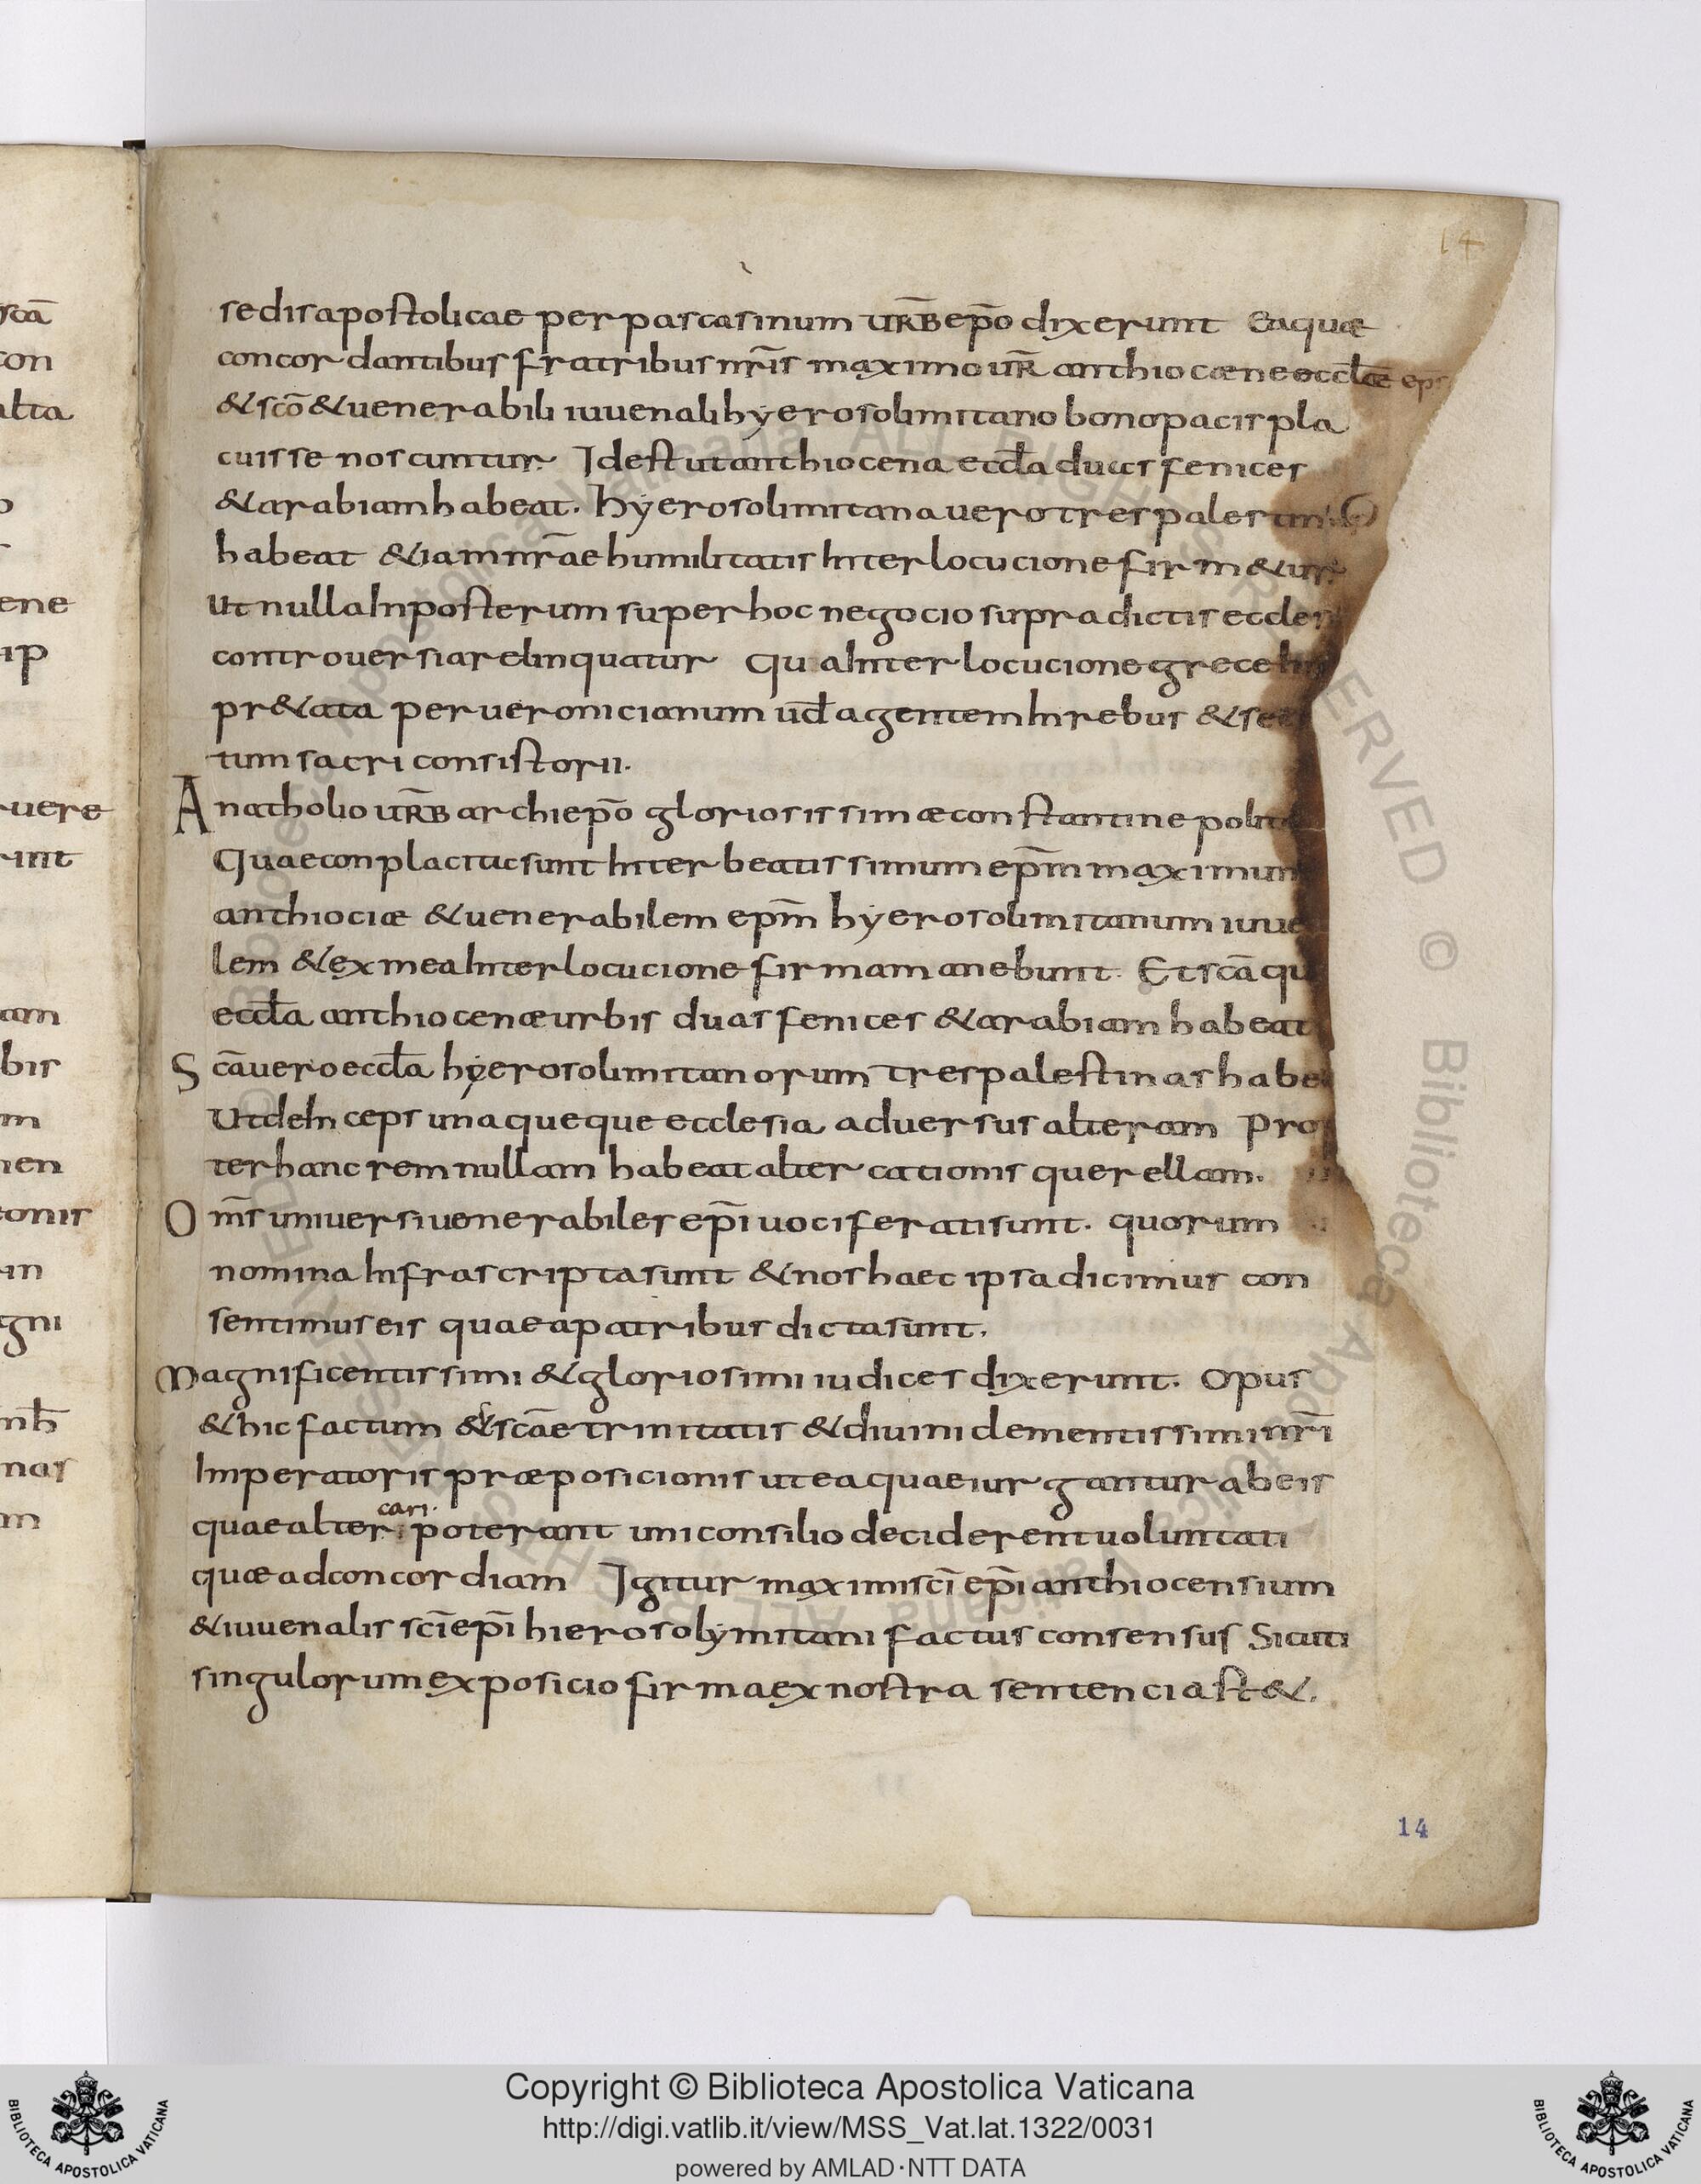 14
sedis apostolicae per pascasinum ūrb ep̄o dixerunt Ea quæ
concordantibus fratribus nr̄is maximo ūr anthiocæne eccl̄æ eps
& sc̄o & uenerabili iuuenali hyerosolimitano bono pacis pla
cuisse noscuntur. Id est ut anthiocena eccl̄a duas fenices
& arabiam habeat. hyerosolimitana uero tres
habeat & iam nr̄ae humilitatis Interlocucione firm&ur
Ut nulla Inposterum super hoc negocio supradictis eccles
controuersia relinquatur Qua Interlocucione grece In
pr&ata per ueronicianum ud̄ agentem In rebus & sec
tum sacri consistorii.
Anatholio ūrb archiep̄o gloriosissimæ constantinepolit
Quae conplacita sunt Inter beatissimum ep̄m maximum
anthiociæ & uenerabilem ep̄m hyerosolimitanum iuue
lem & ex mea Interlocucione firma manebunt. Et sc̄a qu
eccl̄a anthiocenæ urbis duas fenices & arabiam habeat
Sc̄a uero eccl̄a hyerosolimitanorum tres palestinas habe
Ut deInceps unaqueque ecclesia aduersus alteram Pro
ter hanc rem nullam habeat altercationis querellam.
Om̄s uniuersi uenerabiles ep̄i uociferati sunt. quorum
nomina Infrascripta sunt & nos haec ipsa dicimus con
sentimus eis quae a patribus dicta sunt.
Magnificentissimi & gloriosimi iudices dixerunt. Opus
& hic factum & sc̄ae trinitatis & diuini clementissimi nr̄i
Imperatoris præposicionis ut ea quae iurgantur ab eis
cari.
quae alter poterant uni consilio deciderent uoluntati
quæ ad concordiam Igitur maximi sc̄i ep̄i anthiocensium
& iuuenalis sc̄i ep̄i hierosolymitani factus consensus Sicuti
singulorum exposicio firma ex nostra sentencia st&.
14
Copyright © Biblioteca Apostolica Vaticana
http://digi.vatlib.it/view/MSS_Vat.lat.1322/0031
powered by AMLAD·NTT DATA
BIBLIOTECA APOSTOLICA VATICANA
BIBLIOTECA APOSTOLICA VATICANA